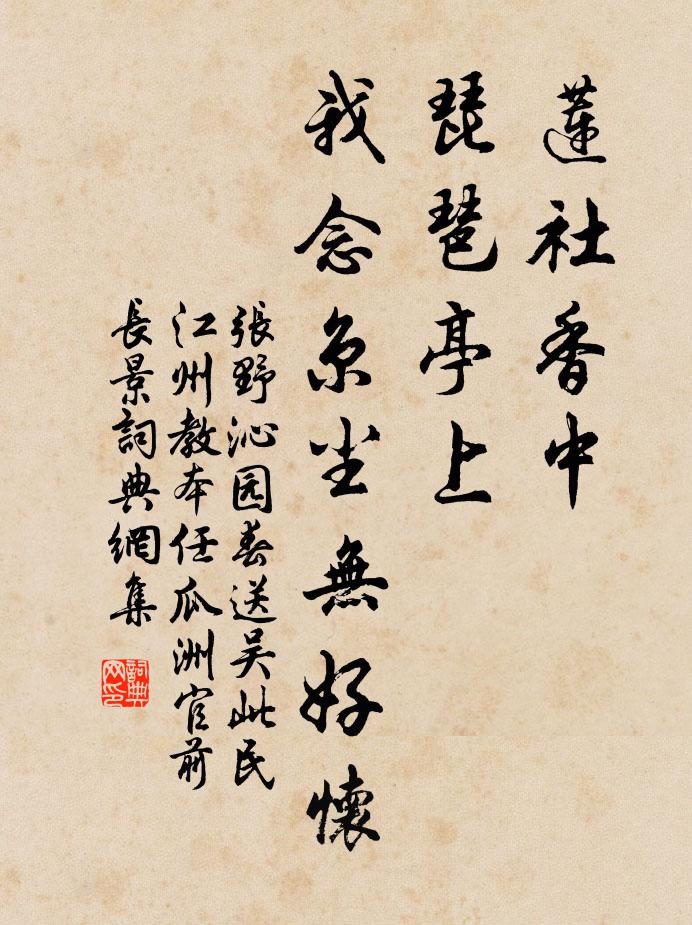 蓮社香中
琵琶亭上
我念京尘無好懷
張野沁园春送吴此民
江州教本任瓜洲官前
長景詞典網集
詞典网印